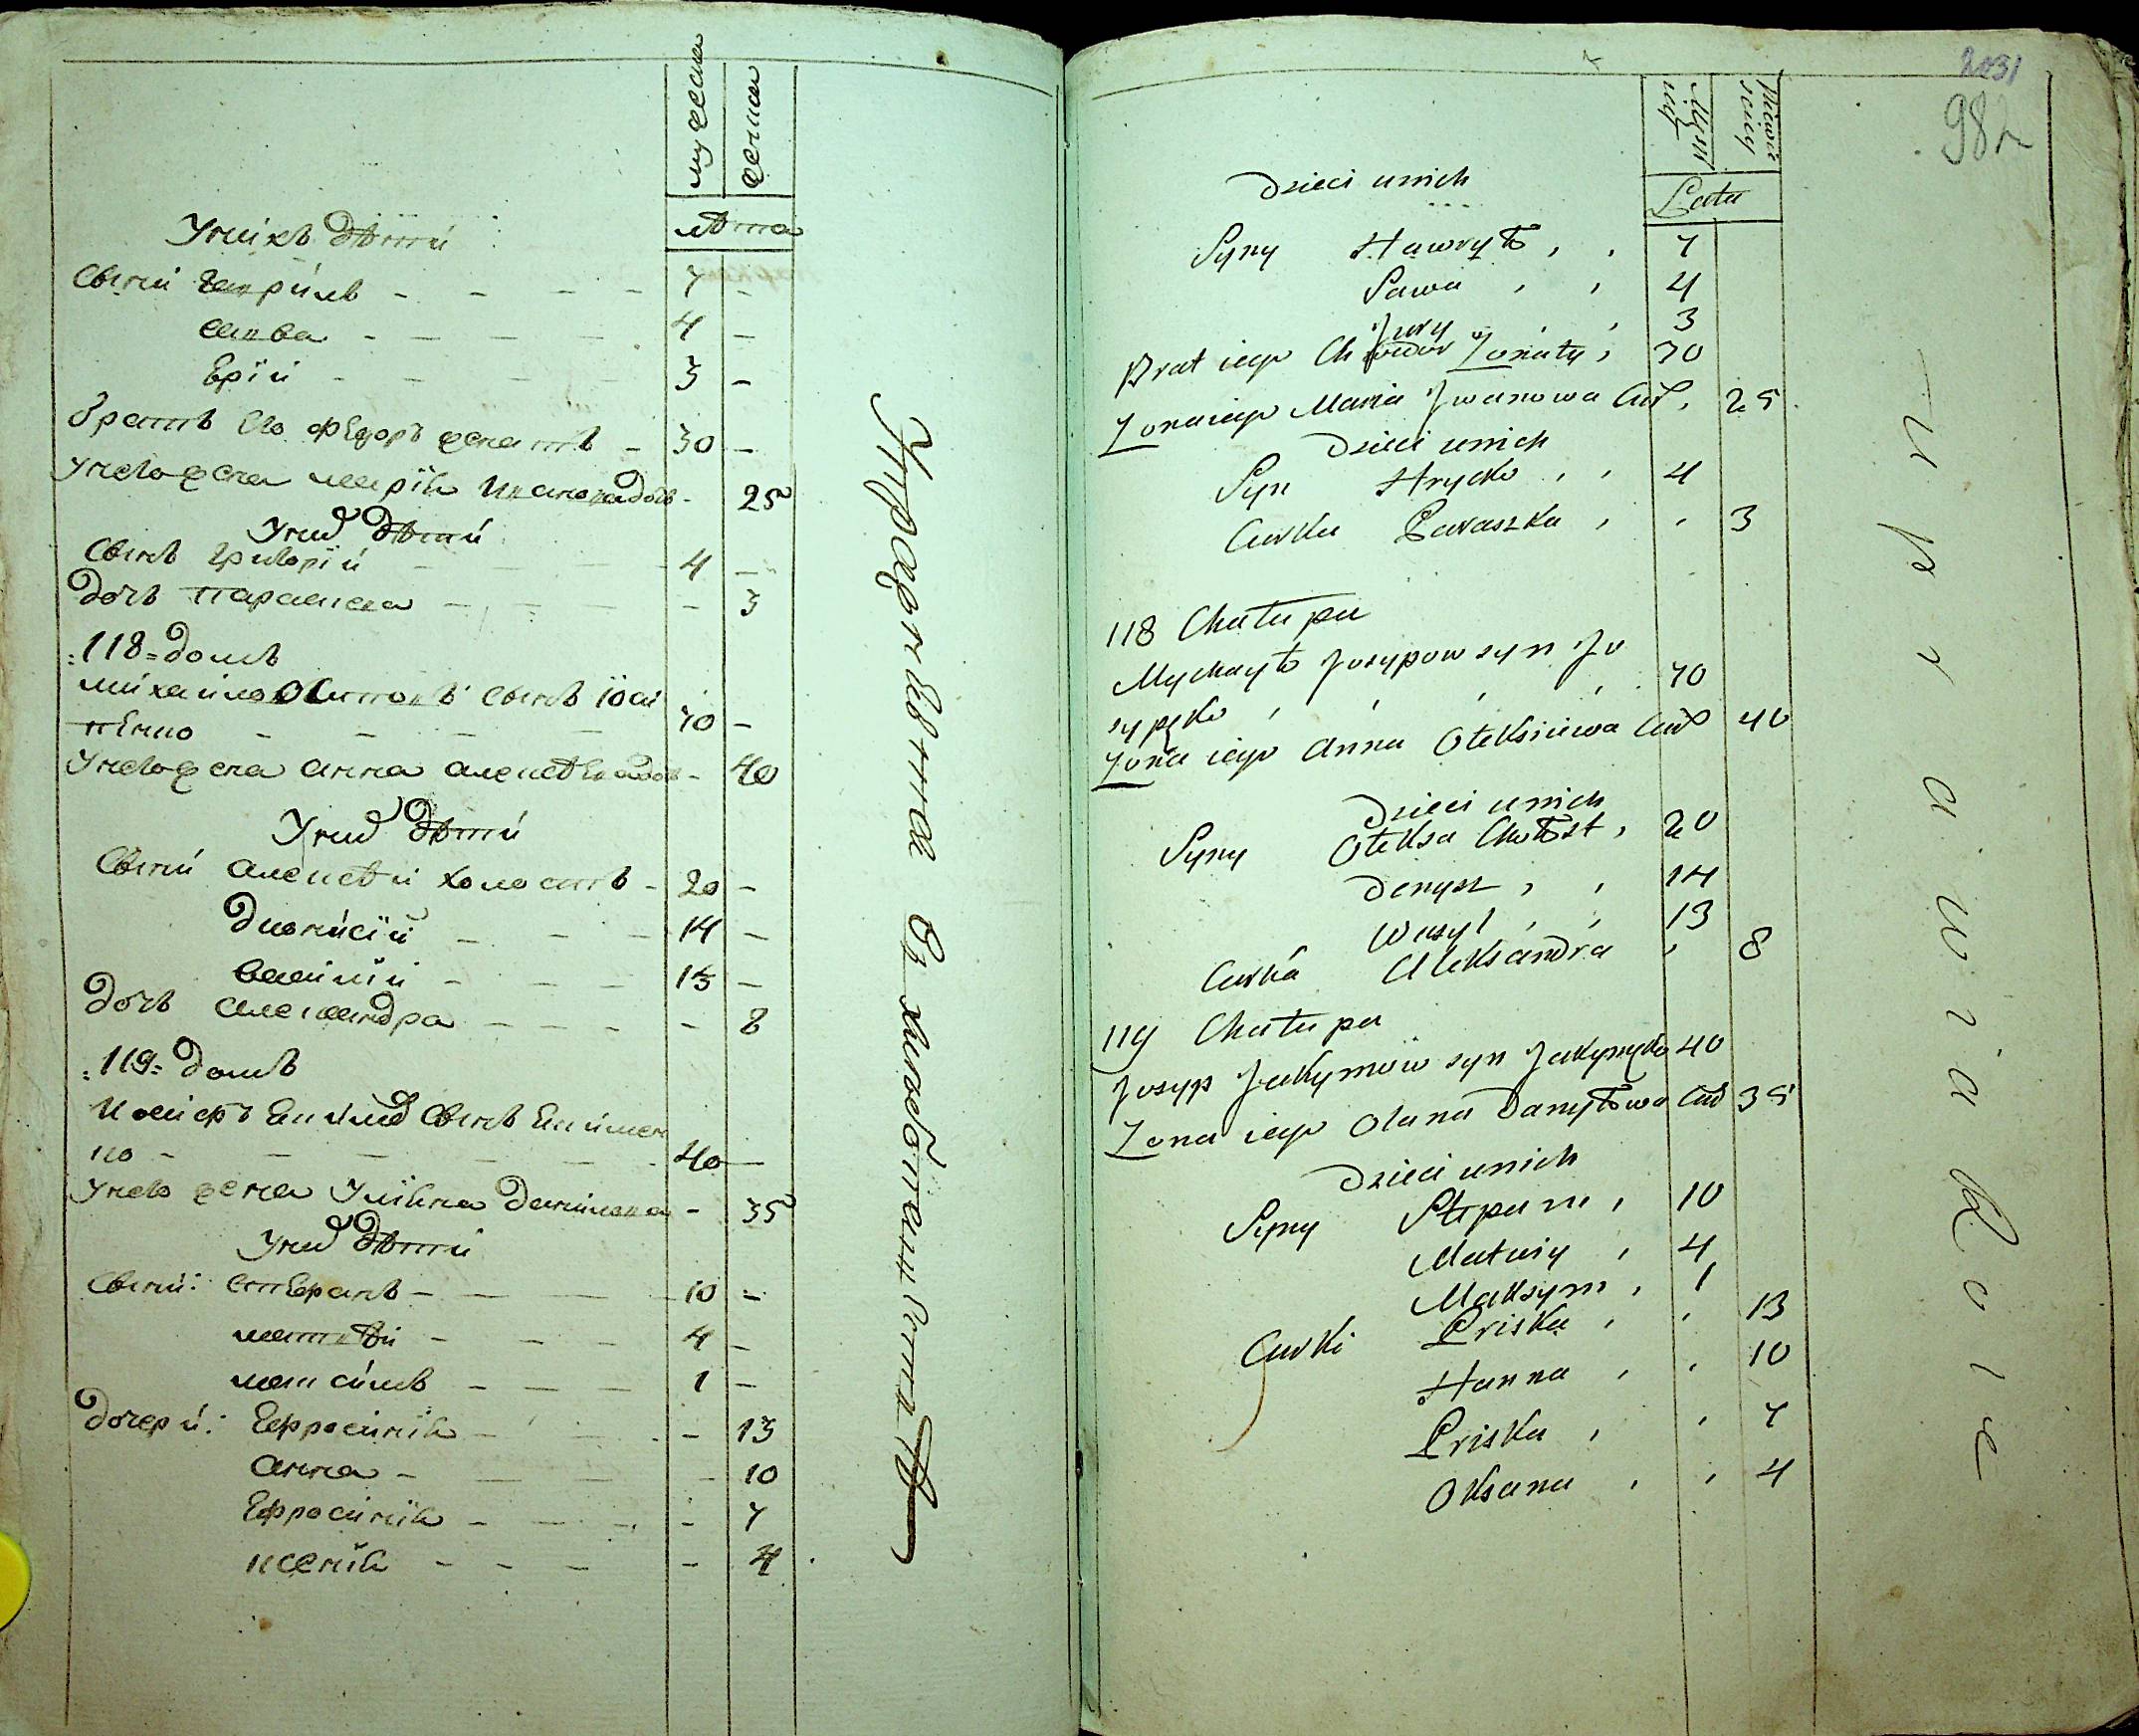 мужеска
женска
лѣта
У нихъ дѣти
Сыни Гавріилъ - - - - 7 -
Савва - - - - 4 -
Юрій - - - 3 -
Братъ его Федоръ женатъ - 30 -
У него жена Марія Иванова дочь - 25
У нид дѣти
Сынъ Григорій - - - 4 -
Дочь Параскева - - - - 3
:118= домъ
Михайло Осиповъ сынъ Іоси
пенко - - - - 70 -
У него жена Анна Алексѣева дочь - 40
У нид дѣти
Сыни Алексѣй холостъ - 20 -
Діонисій - - - 14 -
Василій - - - 13 -
Дочь Александра - - - - - 8
:119= домъ
Іосифъ Екимов сынъ Екимен
ко - - - - - 40 -
У него жена Уліяна Данилова - 35
У нид дѣти
Сыни: Стефанъ - - - 10 -
Матвѣй - - - 4 -
Максимъ - - - 1 -
Дочери: Евфросинія - - - 13
Анна - - - 10
Евфросинія - - - 7
Ксенія - - - - 4
2031
982
Męskiej
Niewieściej
Lata
Dzieci u nich
Syny Hawryło , , 7
Sawa , , 4
Jury , , 3
Brat iego Chwedor Żonaty , 30
Żona iego Maria Iwanowa Cur. , 25
Dzieci u nich
Syn Hrycko , , 4
Curka Paraszka , , 3
118 Chałupa
Mychayło Josypow syn Jo
sypęko , , , 70
Żona iego Anna Ołeksiiewa Cur 40
Dzieci u nich
Syny Ołeksa Chołost , 20
Denysz , , 14
Wasyl , , 13
Curka Aleksandra , 8
119 Chałupa
Josyp Jakymow syn Jakymęko 40
Żona iego Olana Danyłowa Cur 35
Dzieci u nich
Syny Stepan , 10
Matwiy , 4
Maksym , 1
Curki Priska , , 13
Hanna , , 10
Priska , , 7
Oksana , , 4